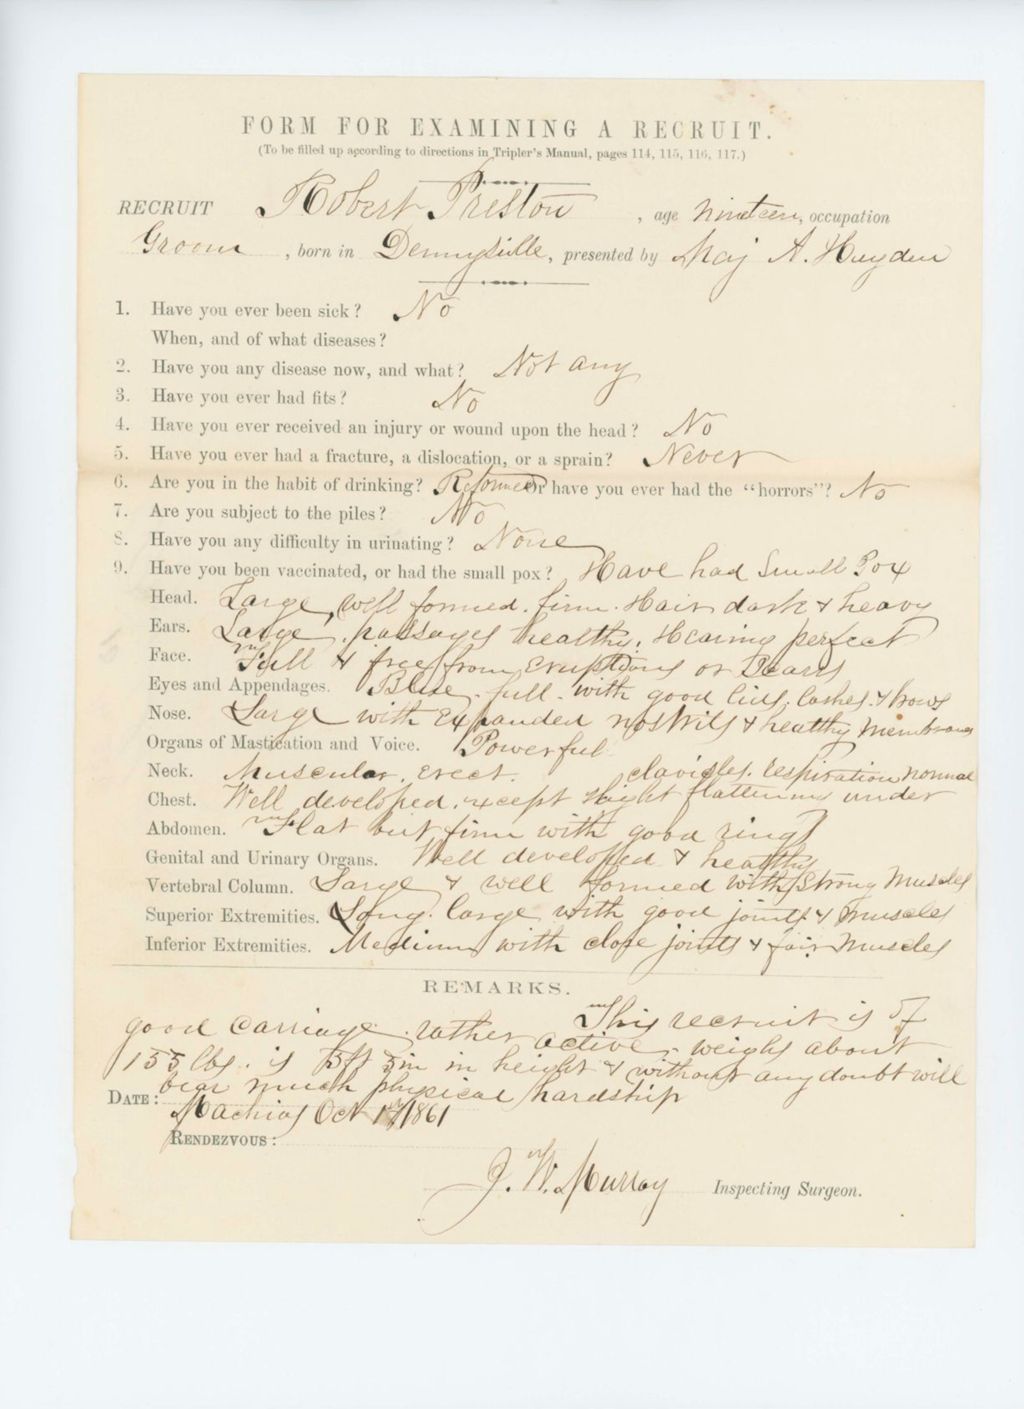 FORM FOR EXAMINING A RECRUIT.
(To be filled up according to directions in Tripler's Manual, pages 114, 115, 116, 117.)
RECRUIT Robert Preston, age nineteen, occupation
Groom, born in Dennysville, presented by Maj A. Hayden
1. Have you ever been sick? No
When, and of what diseases?
2. Have you any disease now, and what? Not any
3. Have you ever had fits? No
4. Have you ever received an injury or wound upon the head? No
5. Have you ever had a fracture, a dislocation, or a sprain? Never
6. Are you in the habit of drinking? Reformed Or have you ever had the "horrors"? No
7. Are you subject to the piles? No
8. Have you any difficulty in urinating? None
9. Have you been vaccinated, or had the small pox? Have had Small Pox
Head. Large, well formed. firm. Hair dark & heavy
Ears. Large, passages healthy, Hearing perfect
Face. Full & free from Eruptions or Scars
Eyes and Appendages. Blue. full. with good lids, lashes & brows
Nose. Large with Expanded nostrils & healthy membrane
Organs of Mastication and Voice. Powerful
Neck. Muscular, erect.
clavicles. Respiration normal
Chest. Well developed, except slight flattening under
Abdomen. Flat but firm with good rings
Genital and Urinary Organs. Well developed & healthy
Vertebral Column. Large & well formed with strong muscles
Superior Extremities. Long. large with good joints & muscles
Inferior Extremities. Medium with close joints & fair muscles
REMARKS.
This recruit is of
good carriage. rather active. weighs about
155 lbs. is 5ft in in height & without any doubt will
bear much physical hardship
DATE: Machias Oct 1861
RENDEZVOUS:
J. W. Murray Inspecting Surgeon.